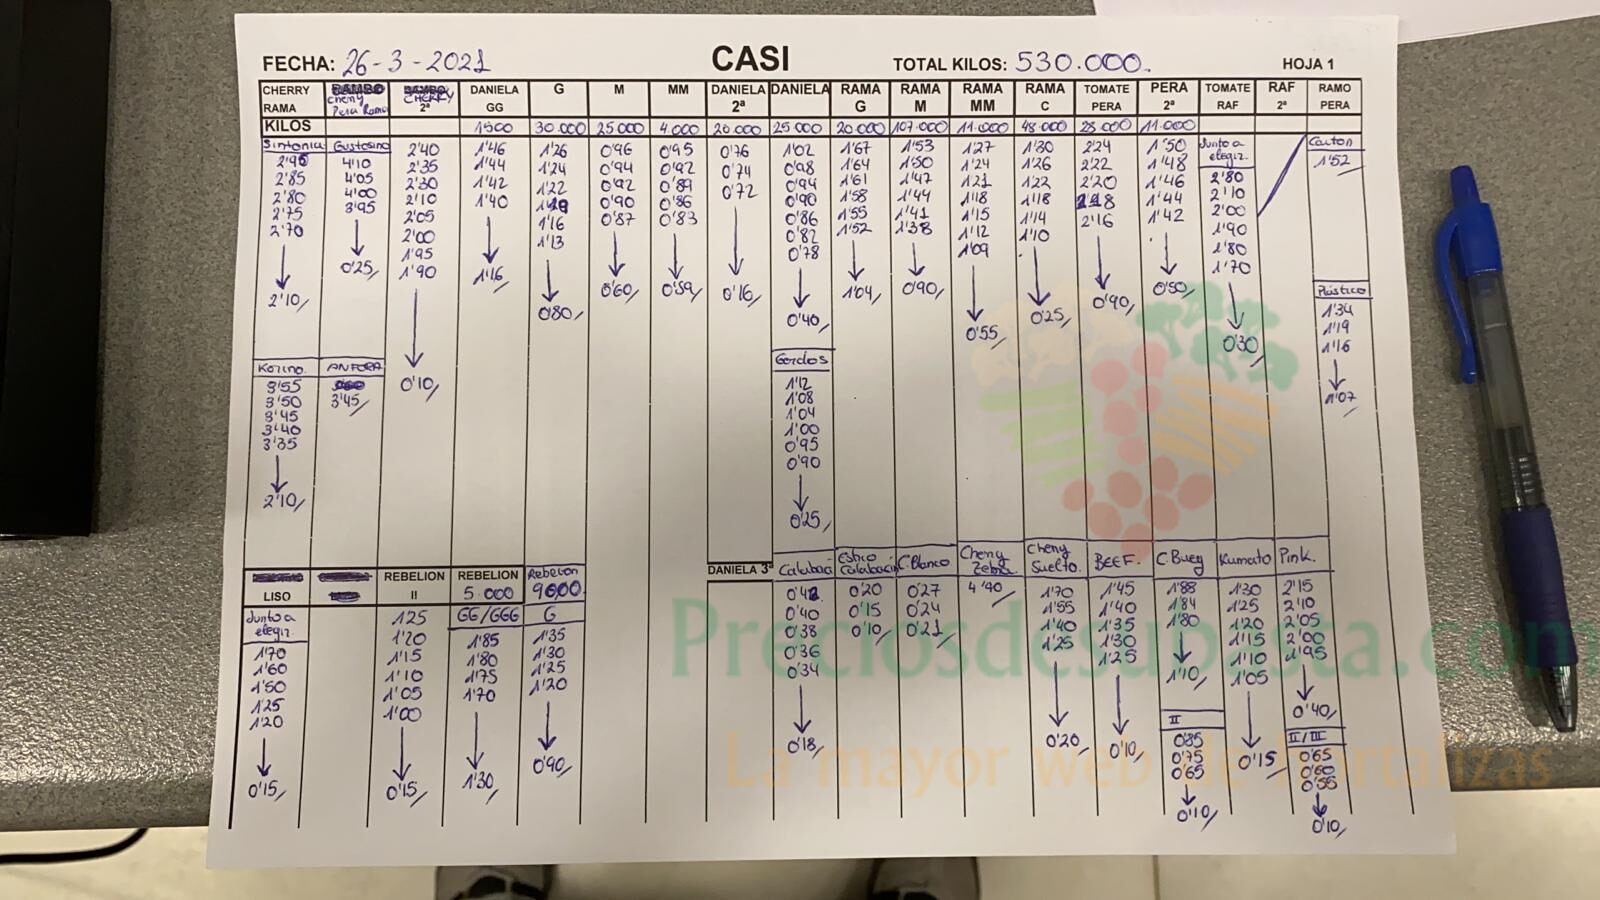 FECHA: 26-3-2021 CASI TOTAL KILOS: 530.000. HOJA 1
CHERRY RAMA Cherry Pera Rama CHERRY 2ª DANIELA GG G M MM DANIELA 2ª DANIELA RAMA G RAMA M RAMA MM RAMA C TOMATE PERA PERA 2ª TOMATE RAF RAF 2ª RAMO PERA
KILOS 1500 30.000 25.000 4.000 20.000 25.000 20.000 107.000 11.000 48.000 28.000 11.000
Sintonia
2'95
2'85
2'80
2'75
2'70
2'10
Korino.
3'55
3'50
3'45
3'40
3'35
2'10
Gustosino
4'10
4'05
4'00
3'95
0'25
ANFORA
3'45
2'40
2'35
2'30
2'10
2'05
2'00
1'95
1'90
0'10
1'46
1'44
1'42
1'40
1'16
1'26
1'24
1'22
1'16
1'13
0'80
0'96
0'94
0'92
0'90
0'87
0'60
0'95
0'92
0'89
0'86
0'83
0'59
0'76
0'74
0'72
0'16
1'02
0'98
0'94
0'90
0'86
0'82
0'78
0'40
Gordos
1'12
1'08
1'04
1'00
0'95
0'90
0'25
1'67
1'64
1'61
1'58
1'55
1'52
1'04
1'53
1'50
1'47
1'44
1'41
1'38
0'90
1'27
1'24
1'21
1'18
1'15
1'12
1'09
0'55
1'30
1'26
1'22
1'18
1'14
1'10
0'25
2'24
2'22
2'20
2'18
2'16
0'90
1'50
1'48
1'46
1'44
1'42
0'50
Junto a
elegir.
2'80
2'10
2'00
1'90
1'80
1'70
0'30
Carton
1'52
Plástico
1'34
1'19
1'16
1'07
LISO
Junto a
elegir.
1'70
1'60
1'50
1'25
1'20
0'15
REBELION
II
1'25
1'20
1'15
1'10
1'05
1'00
0'15
REBELION
5.000
GG/GGG
1'85
1'80
1'75
1'70
1'30
Rebelion
9000
G
1'35
1'30
1'25
1'20
0'90
DANIELA 3ª
Calabaci
0'42
0'40
0'38
0'36
0'34
0'18
Estrio
Calabacin
0'20
0'15
0'10
C.Blanco
0'27
0'24
0'21
Cherry
Zebra
4'40
Cherry
Suelto.
1'70
1'55
1'40
1'25
0'20
BEEF.
1'45
1'40
1'35
1'30
1'25
0'10
C.Buey
1'88
1'84
1'80
1'10
II
0'85
0'75
0'65
0'10
Kumato
1'30
1'25
1'20
1'15
1'10
1'05
0'15
Pink.
2'15
2'10
2'05
2'00
1'95
0'40
II/III
0'65
0'60
0'55
0'10
Preciosdesubasta.com
La mayor web de hortalizas